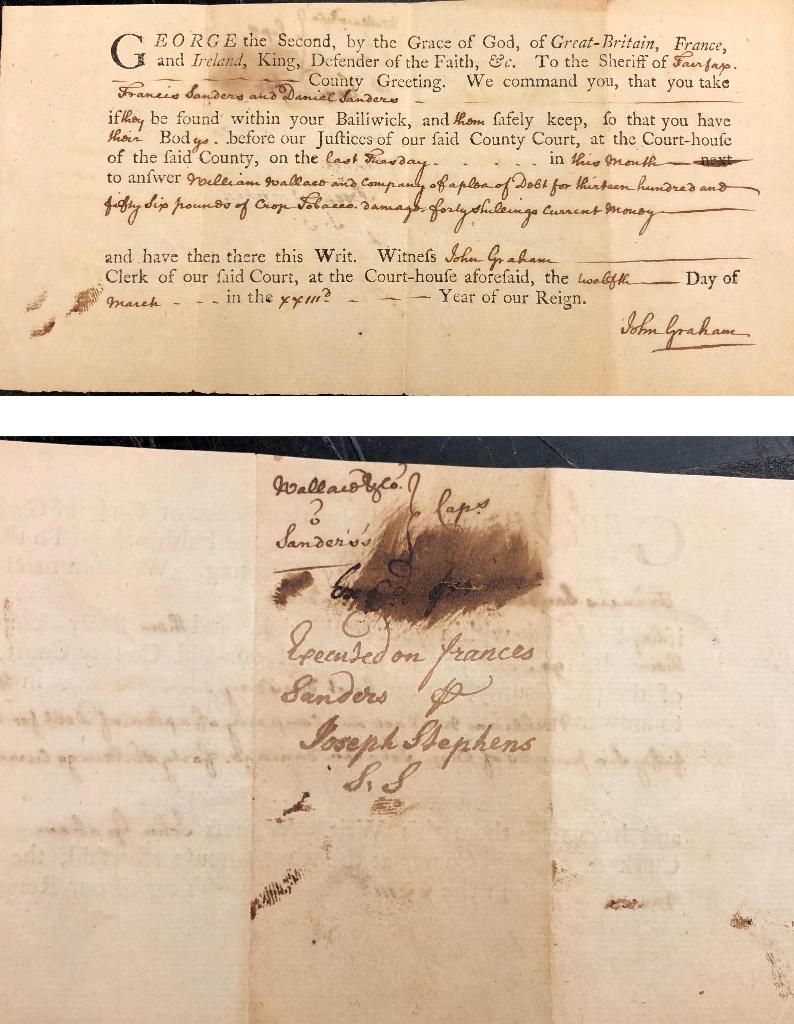 GEORGE the Second, by the Grace of God, of Great-Britain, France,
and Ireland, King, Defender of the Faith, &c. To the Sheriff of Fairfax.
County Greeting. We command you, that you take
Francis Sanders and Daniel Sanders
if they be found within your Bailiwick, and them ſafely keep, ſo that you have
their Bodys. before our Juſtices of our ſaid County Court, at the Court-houſe
of the ſaid County, on the last Tuesday. . . . . . in this Month next
to answer William Wallace and Company of a plea of Debt for thirteen hundred and
fifty Six pounds of Crop Tobacco. damage forty shillings Current Money
and have then there this Writ. Witneſs John Graham
Clerk of our ſaid Court, at the Court-houſe aforeſaid, the twelfth Day of
March - - - in the xxiiid - - Year of our Reign.
John Graham
Wallace & Co.
Sanders's
Caps
Executed on frances
Sanders
Joseph Stephens
S. S